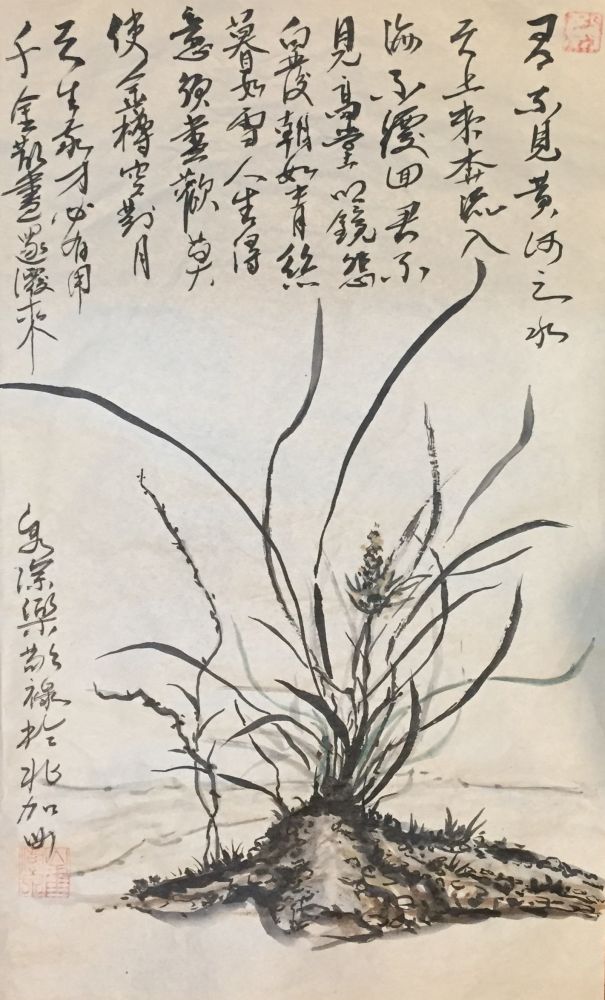 君不見黃河之水
天上來奔流入
海不復回君不
見高堂明鏡悲
白髮朝如青絲
暮如雪人生得
意須盡歡莫
使金樽空對月
天生我才必有用
千金散盡還復來
樂敬祿於北加州